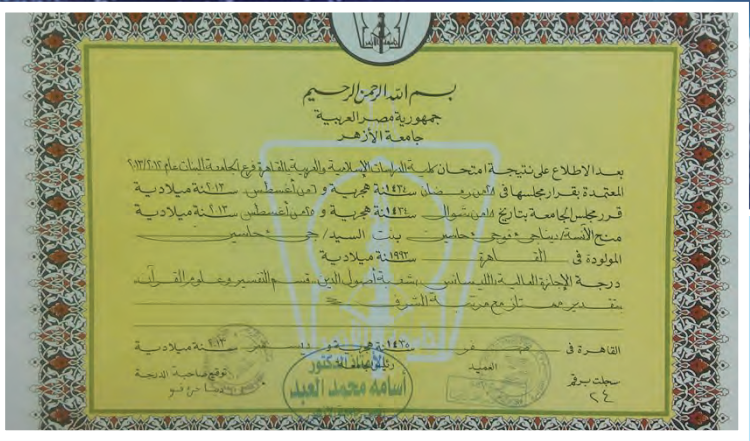 بسم الله الرحمن الرحيم
جمهورية مصر العربية
جامعة الأزهر
بعد الاطلاع على نتيجة امتحان كلية الدراسات الإسلامية والعربية بالقاهرة فرع الجامعة للبنات عام ٢٠١٣/٢٠١٢
المعتمدة بقرار مجلسها في من رمضان سنة ١٤٣٤ هجرية و من أغسطس سنة ٢٠١٣ ميلادية
قرر مجلس الجامعة بتاريخ من شوال سنة ١٤٣٤ هجرية و من أغسطس سنة ٢٠١٣ ميلادية
منح الآنسة/ بنت السيد/
المولودة في القاهرة سنة ١٩٩٢ ميلادية
درجة الإجازة العالية "الليسانس" بشعبة أصول الدين قسم التفسير وعلوم القرآن
بتقدير ممتاز مع مرتبة الشرف
القاهرة في صفر سنة ١٤٣٥ هجرية و سنة ٢٠١٣ ميلادية
توقيع صاحبة الدرجة
رئيس الجامعة
الدكتور
العميد
أسامه محمد العبد
سجلت برقم
٢٤